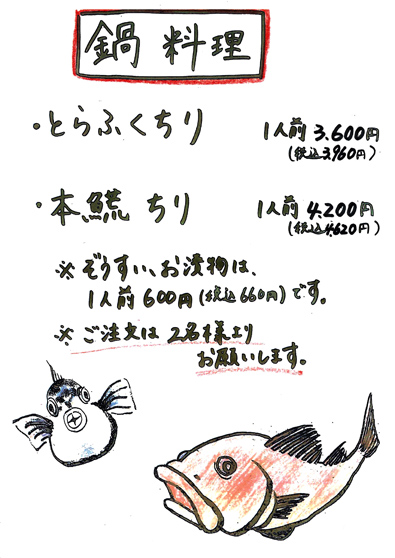 鍋料理
・とらふくちり 1人前 3.600円
(税込3.960円)
・本鱿 ちり 1人前 4.200円
(税込4.620円)
※ぞうすい、お漬物は、
1人前 600円(税込660円)です。
※ご注文は 2名様より
お願いします。